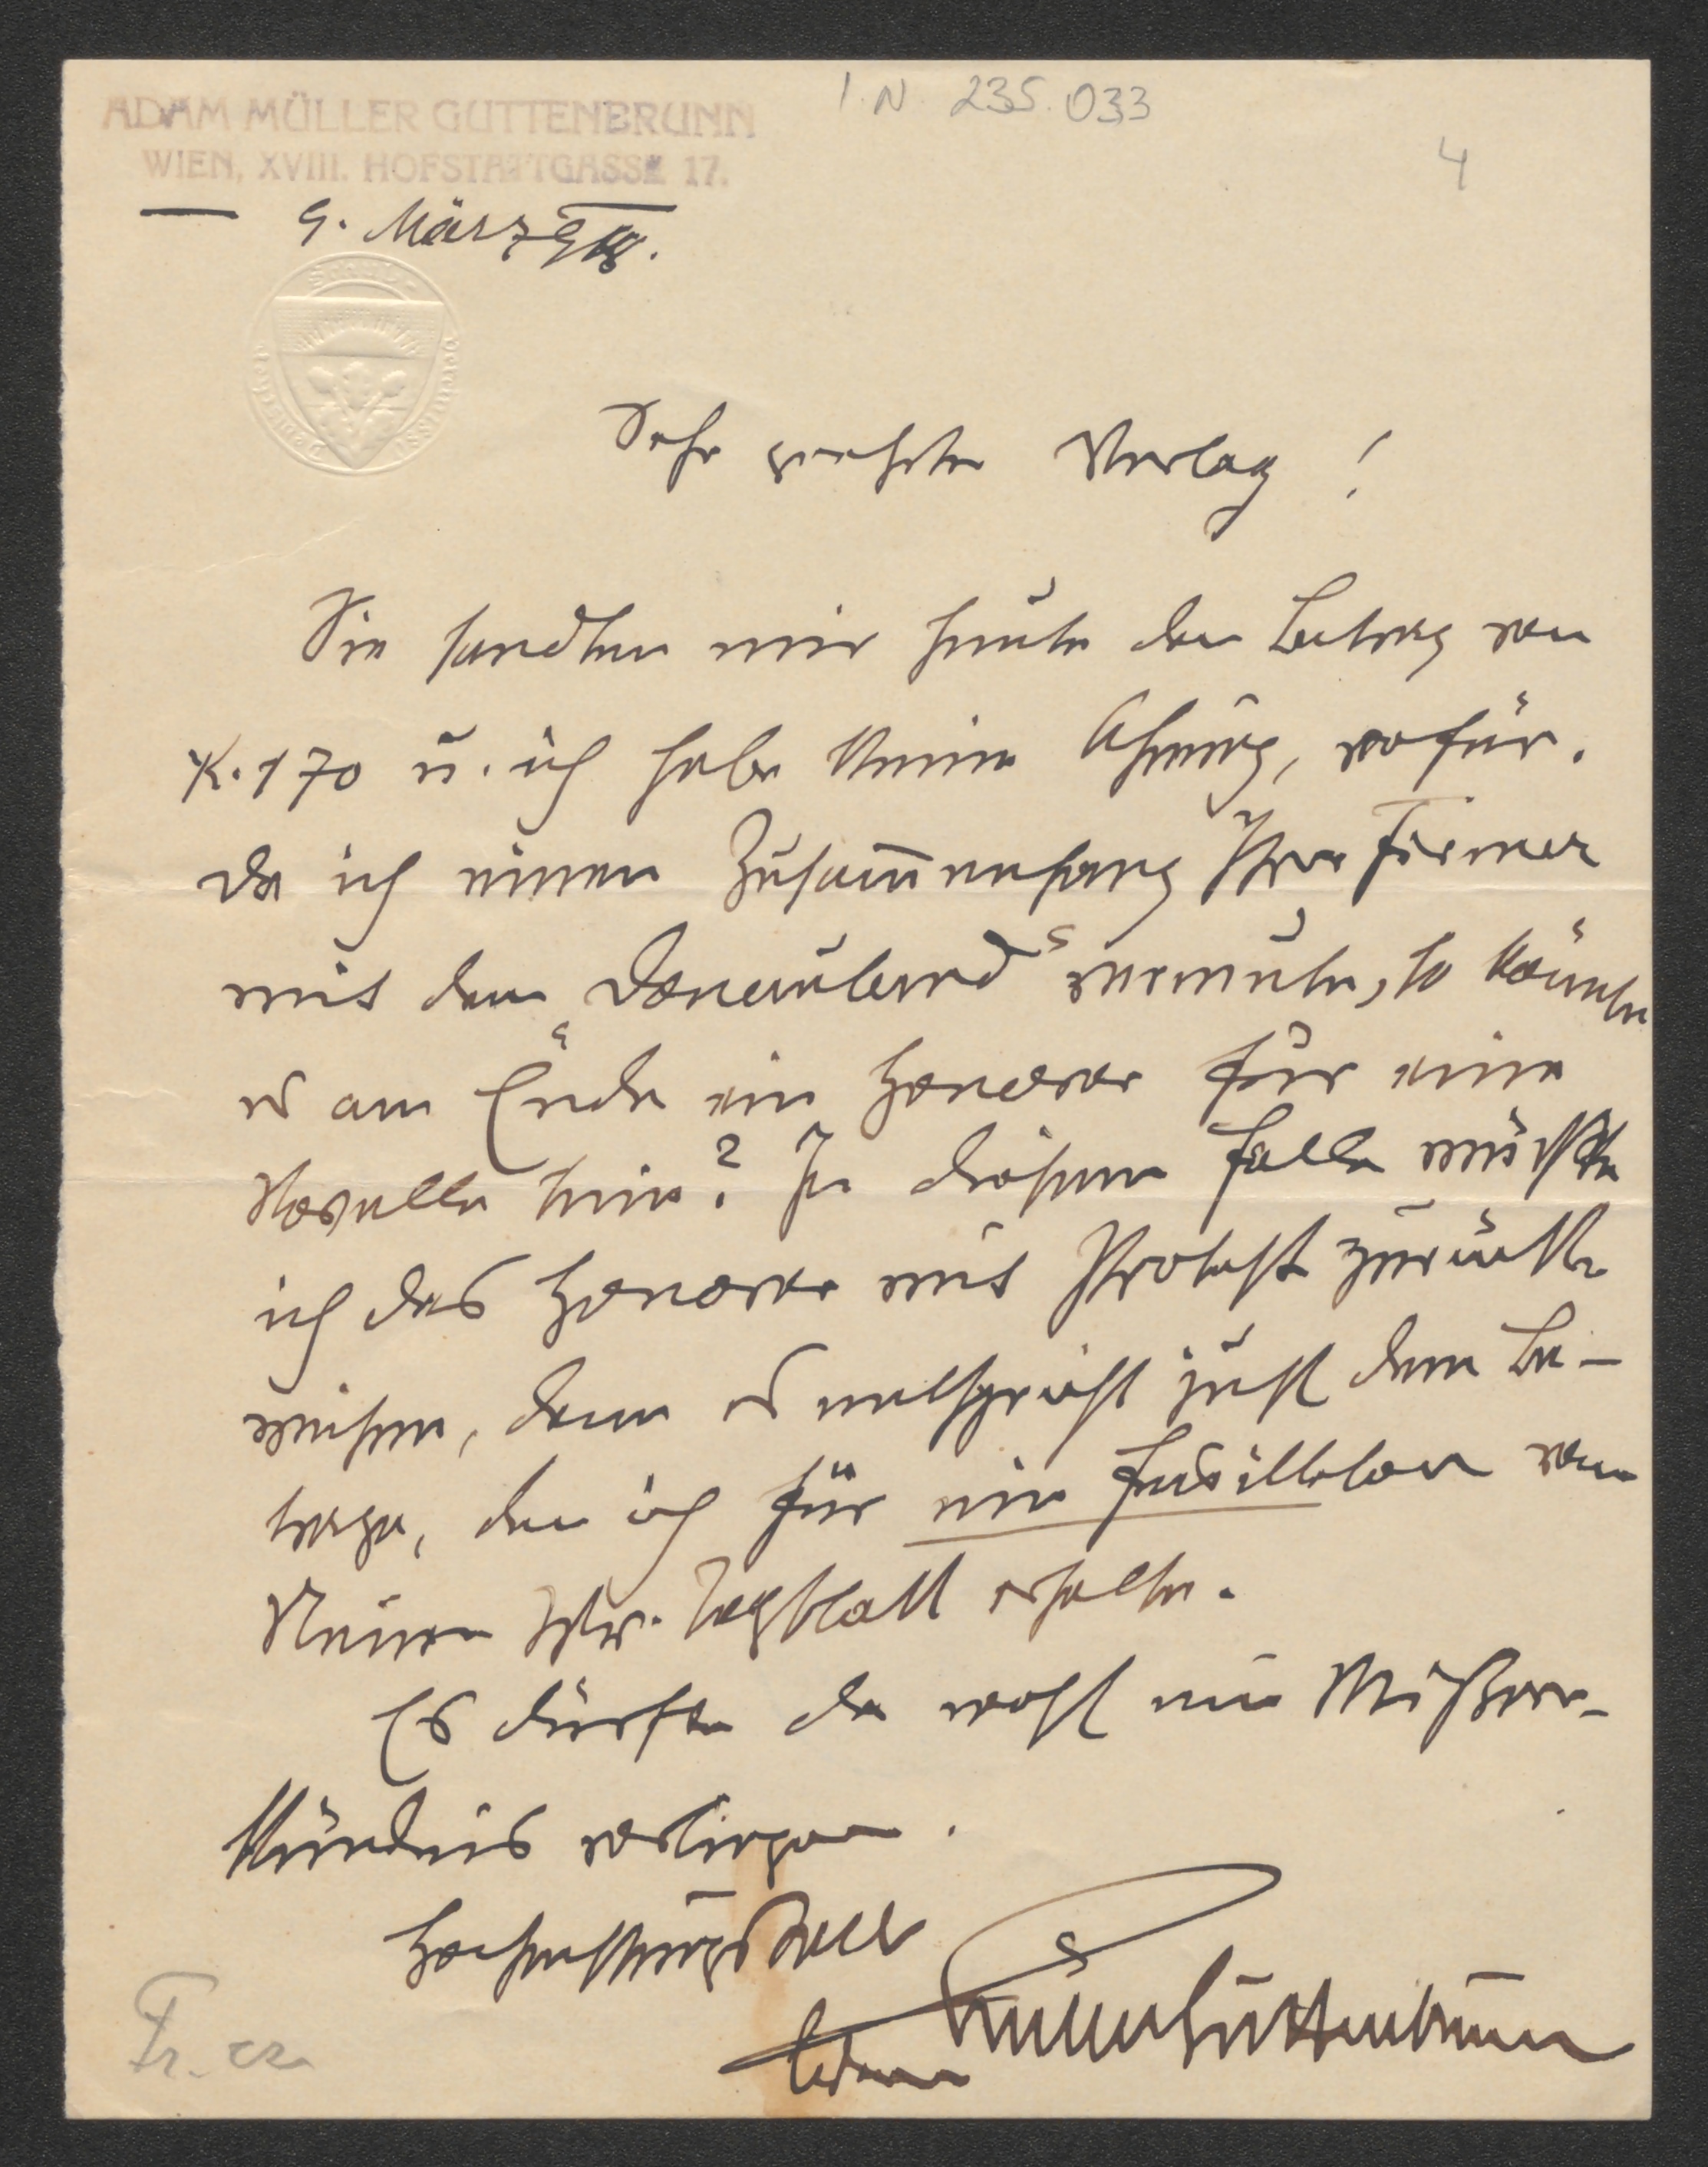 I. N. 235.033
4
ADAM MÜLLER GUTTENBRUNN
WIEN, XVIII. HOFSTATTGASSE 17.
9. März 918.
Sehr geehrter Verlag!
Sie sandten mir heute den Betrag von
K. 170 u. ich habe keine Ahnung, wofür.
Da ich einen Zusammenhang Ihrer Firma
mit dem „Donauland“ vermute, so könnte
es am Ende ein Honorar für eine
Novelle sein? In diesem Falle müßte
ich das Honorar mit Protest zurück
weisen, denn es entspricht just dem Be-
trage, den ich für ein Feuilleton vom
Neuen Wr. Tagblatt erhalte.
Es dürfte da wohl ein Mißver-
ständnis vorliegen.
Hochachtungsvoll
Adam Müller Guttenbrunn